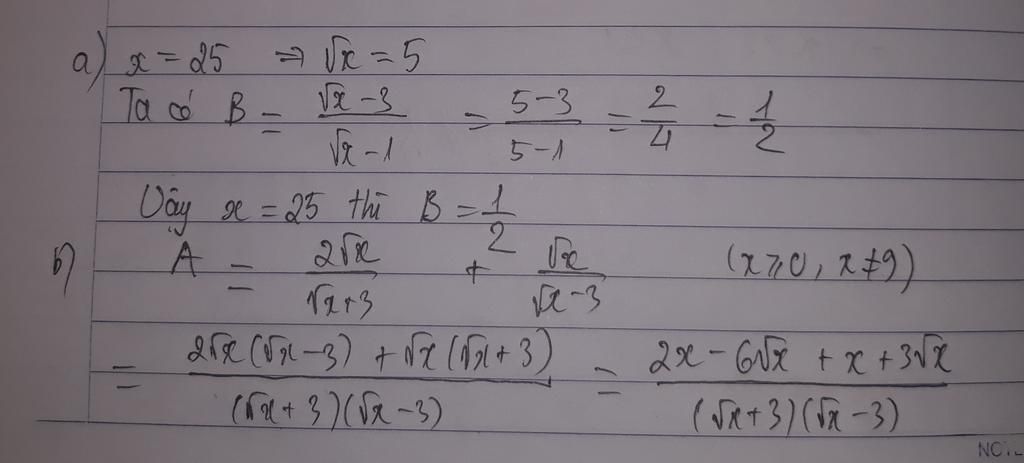 a) x = 25 ⇒ √x = 5
Ta có B = (√x − 3)/(√x − 1) = (5 − 3)/(5 − 1) = 2/4 = 1/2
Vậy x = 25 thì B = 1/2
b) A = 2√x/(√x + 3) + √x/(√x − 3) (x ⩾ 0, x ≠ 9)
= (2√x(√x − 3) + √x(√x + 3))/((√x + 3)(√x − 3)) = (2x − 6√x + x + 3√x)/((√x + 3)(√x − 3))